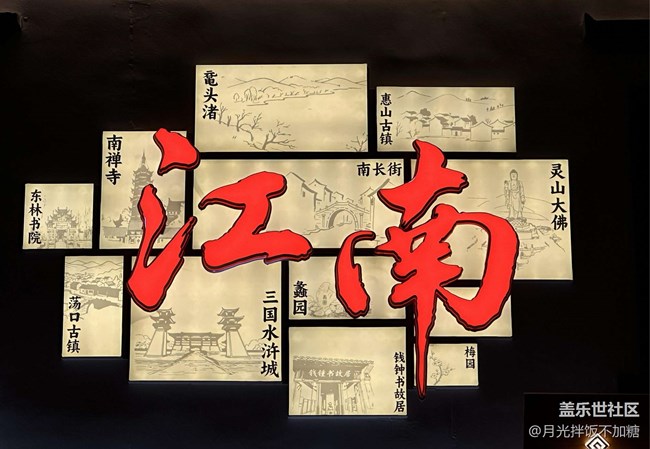 鼋头渚
惠山古镇
南禅寺
南长街
灵山大佛
东林书院
江南
荡口古镇
三国水浒城
蠡园
钱钟书故居
钱钟书故居
梅园
盖乐世社区
@月光拌饭不加糖